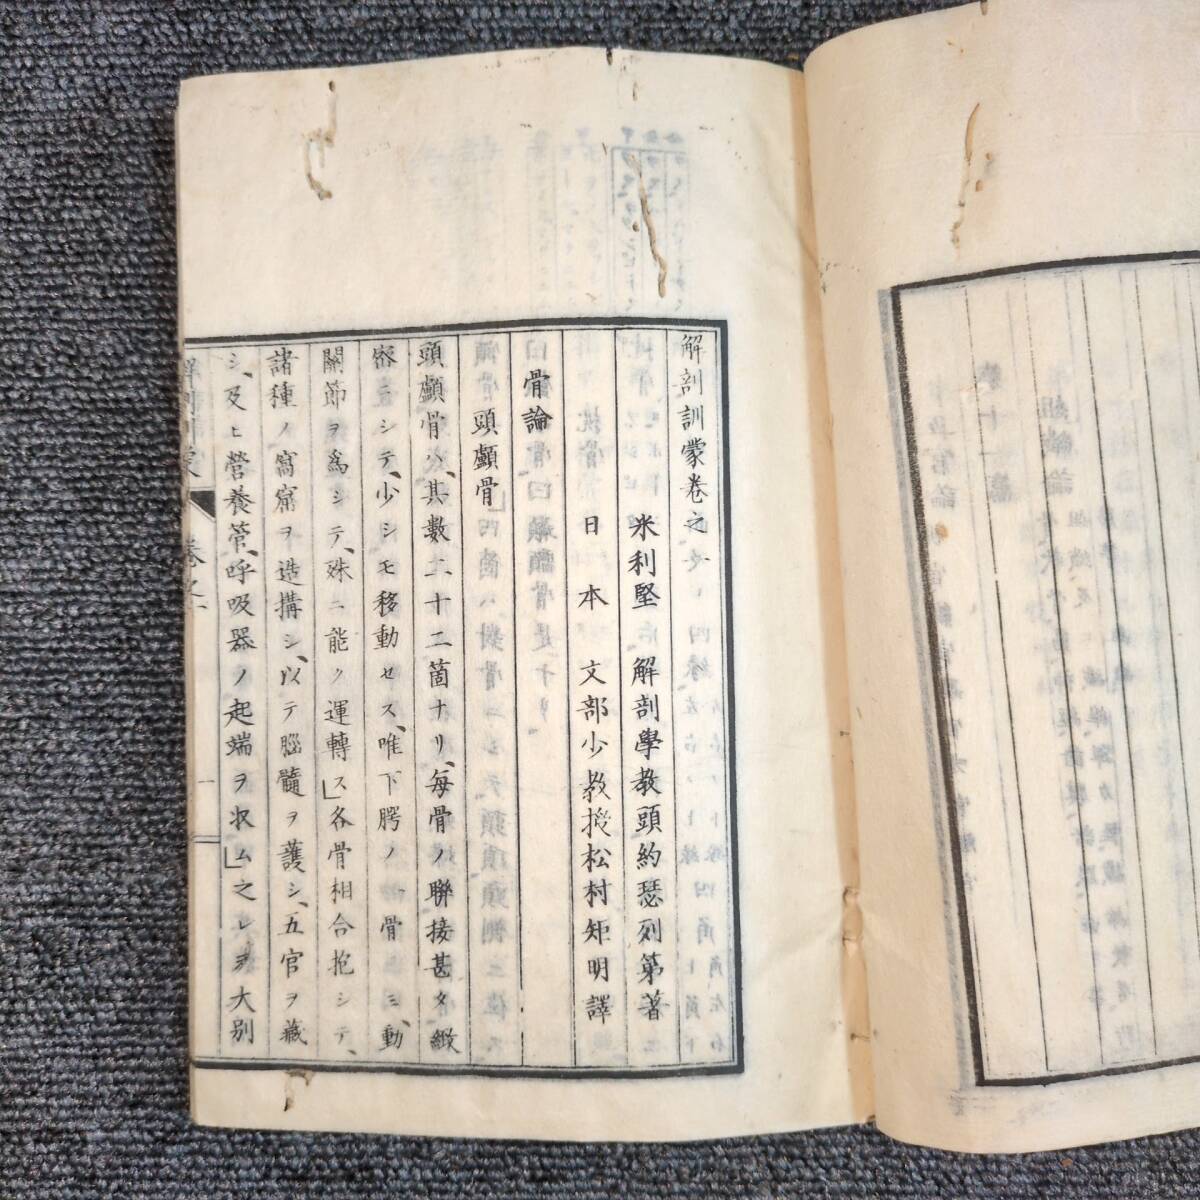 解剖訓蒙卷之一
米利堅 解剖學教頭約瑟列第著
日本 文部少教授松村矩明譯
骨論
頭顱骨
頭顱骨ハ、其數二十二箇ナリ、每骨ノ聯接甚タ緻
密ニシテ、少シモ移動セス、唯下腭ノ骨ニ、動
關節ヲ爲シテ、殊ニ能ク運轉ス」各骨相合抱シテ、
諸種ノ窩窟ヲ造搆シ、以テ腦髓ヲ護シ、五官ヲ藏
シ、及ヒ營養管、呼吸器ノ起端ヲ收ム」之レヲ大別
卷之一
一